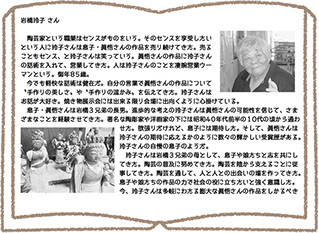 岩橋玲子 さん
陶芸家という職業はセンスがものをいう。そのセンスを享受したい
という人に玲子さんは息子・眞悟さんの作品を売り続けてきた。売る
こともセンス、と玲子さんは笑っていう。眞悟さんの作品に玲子さん
の話術を入れて、営業してきた。人は玲子さんのことを凄腕営業ウー
マンという。御年85歳。
今でも軽妙な話術は健在だ。自分の言葉で眞悟さんの作品について
“手作りの美しさ”や“手作りの温かみ”を伝えてきた。玲子さんは
お話が大好き。焼き物展示会には出来る限り会場に出向くように心掛けている。
眞悟さんは岩橋3兄弟の長男。進歩的な考えの玲子さんは眞悟さんの可能性を信じて、さま
ざまなことを経験させてきた。著名な陶彫家や洋画家の下には昭和40年代前半の10代の頃から通わ
せた。放任うずけれど、息子には期待した。そして、眞悟さんは
玲子さんの期待に応えるかのように数々の輝かしい受賞歴がある。
玲子さんの自慢の息子のようだ。
玲子さんは岩橋3兄弟の母として、息子や娘たちと志を共にし
てきた。陶芸の普及に努めてきた。陶芸を陰から支えることに従
事してきた。陶芸を通して、人と人との出会いの場を作ってきた。
息子や娘たちの作品の力で社会の役に立ちたいと強く意識した。
今、玲子さんは多岐にわたる膨大な眞悟さんの作品をしかるべき